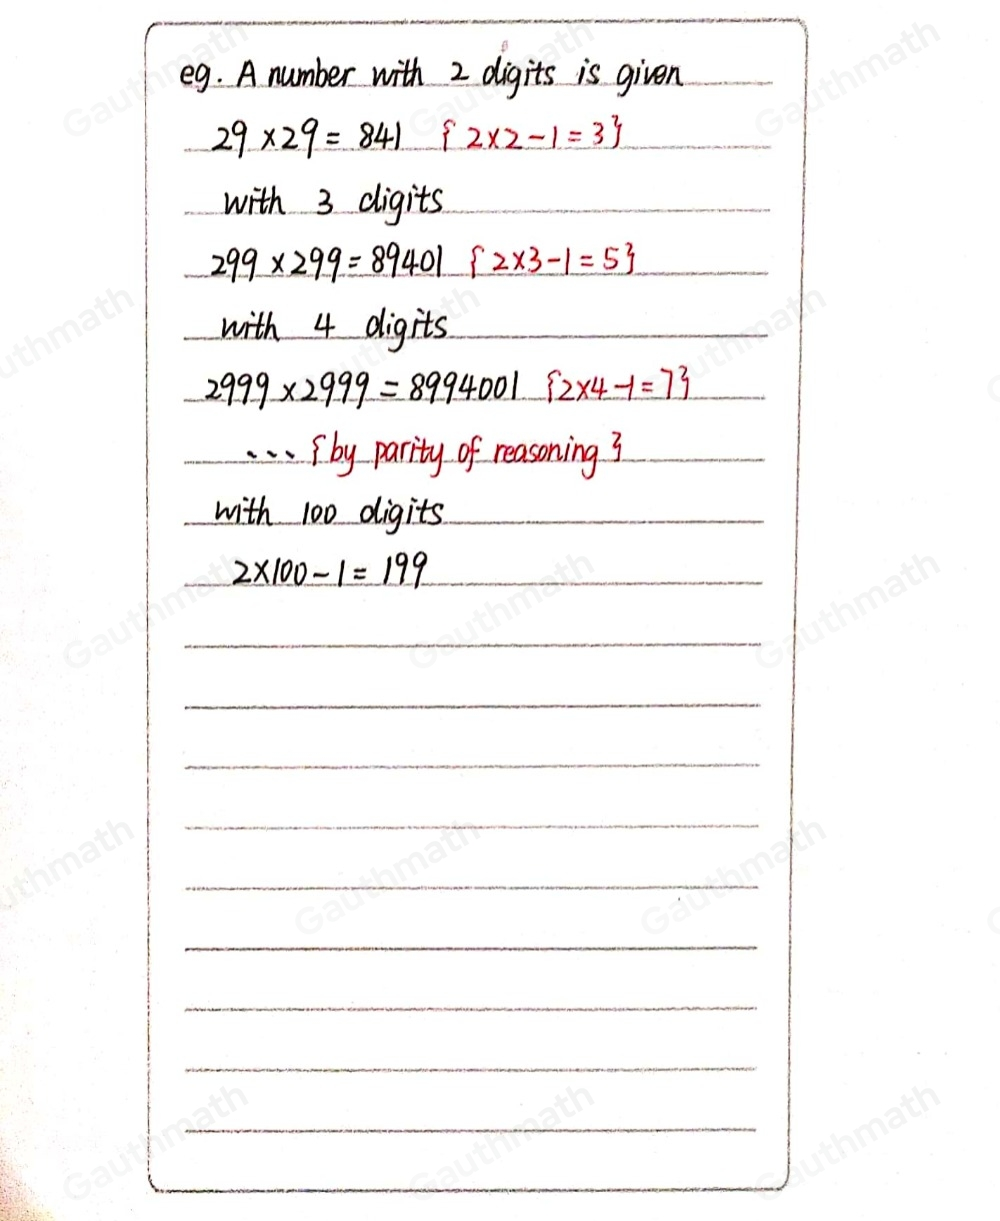 eg. A number with 2 digits is given
29 × 29 = 841 {2×2-1=3}
with 3 digits
299 × 299 = 89401 {2×3-1=5}
with 4 digits
2999 × 2999 = 8994001 {2×4-1=7}
... {by parity of reasoning}
with 100 digits
2×100-1=199